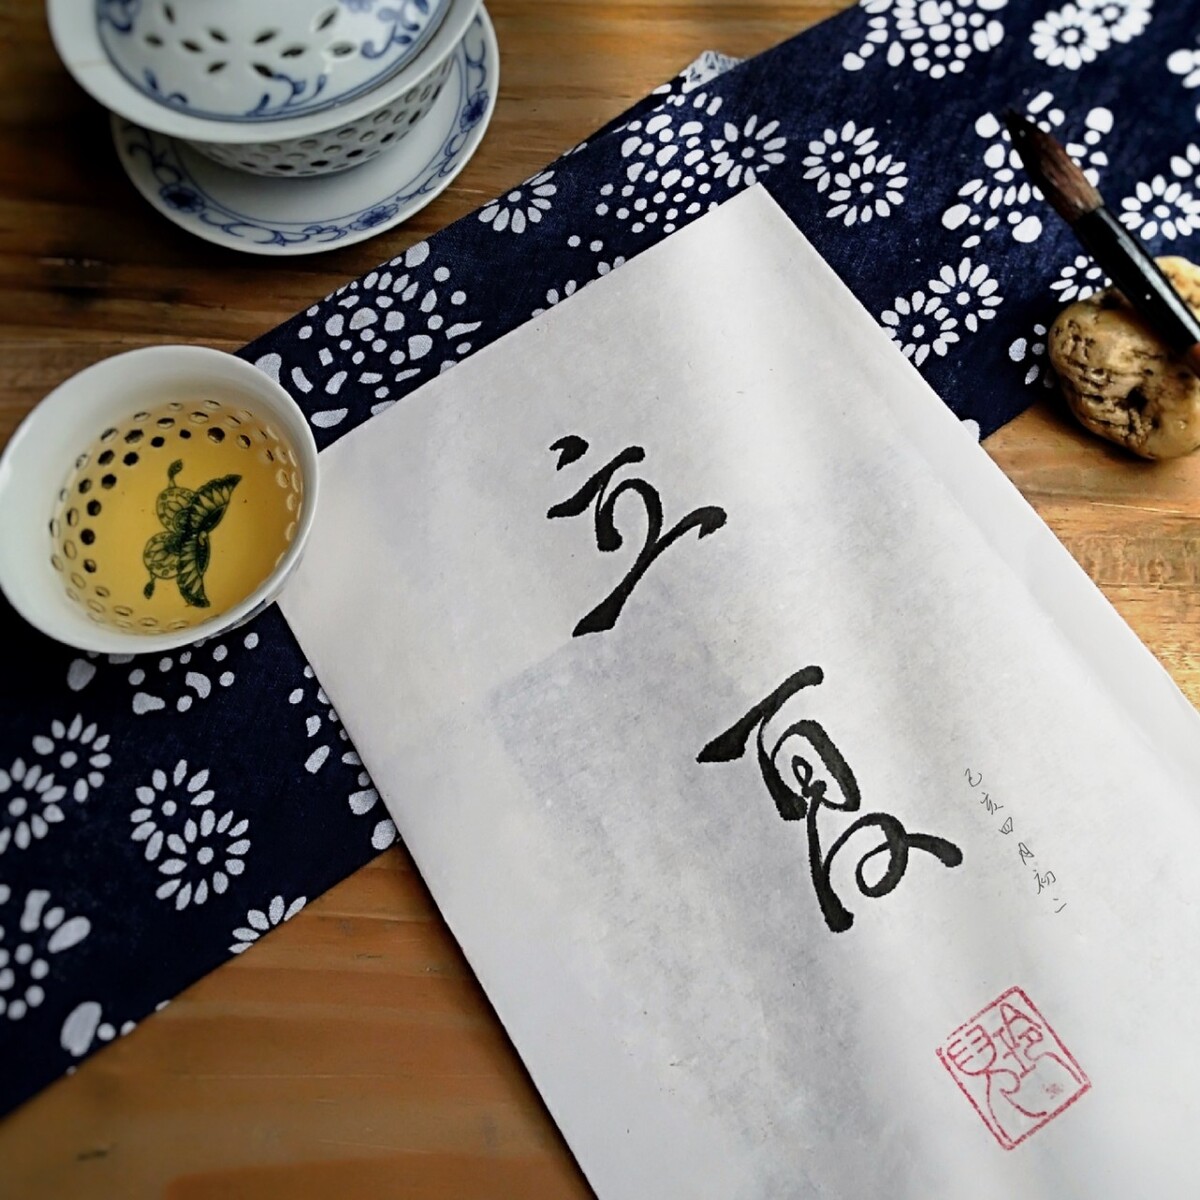 立夏
己亥四月初二